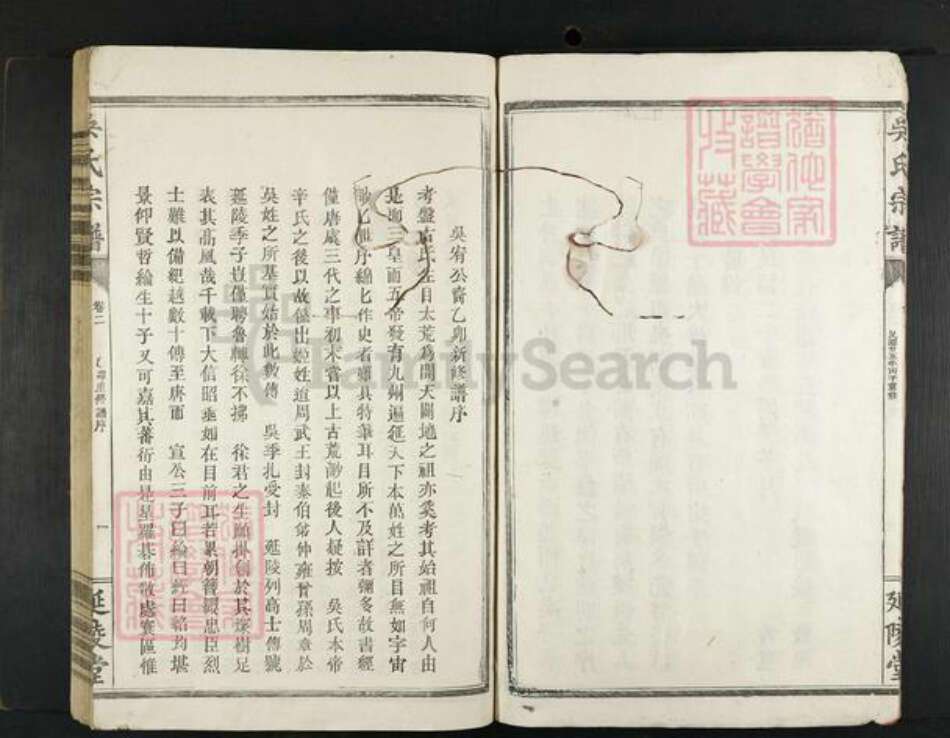 吳氏宗譜
延陵堂
猶他家
譜學會
收藏
吳宥公裔乙卯新修譜序
考盤古氏生目太荒為開天闢地之祖亦奚考其始祖自何人由
三皇而五帝發有九州遍天下本萬姓之所目無如宇宙
世序綿匕作史者具特筆耳目所不及詳者彌多故書經
僅唐虞三代之事初未嘗以上古荒渺起後人疑按 吳氏本帝
辛氏之後以故出姬姓迨周武王封泰伯弟仲雍曾孫周章於
吳姓之所基實始於此數傳 吳季扎受封 延陵列高士傳號
延陵季子豈僅聘魯轉徐不拂 徐君之生願掛劍於其塚樹足
表其高風哉千載下大信昭垂如在目前耳若累朝簪纓忠臣烈
士難以備紀越數十傳至唐而 宣公三子曰綸曰經曰紹均堪
景仰賢哲綸生十子又可嘉其蕃衍由是星羅碁佈散處寰區惟
吳氏宗譜
卷二
譜序
一
延陵堂
FamilySearch